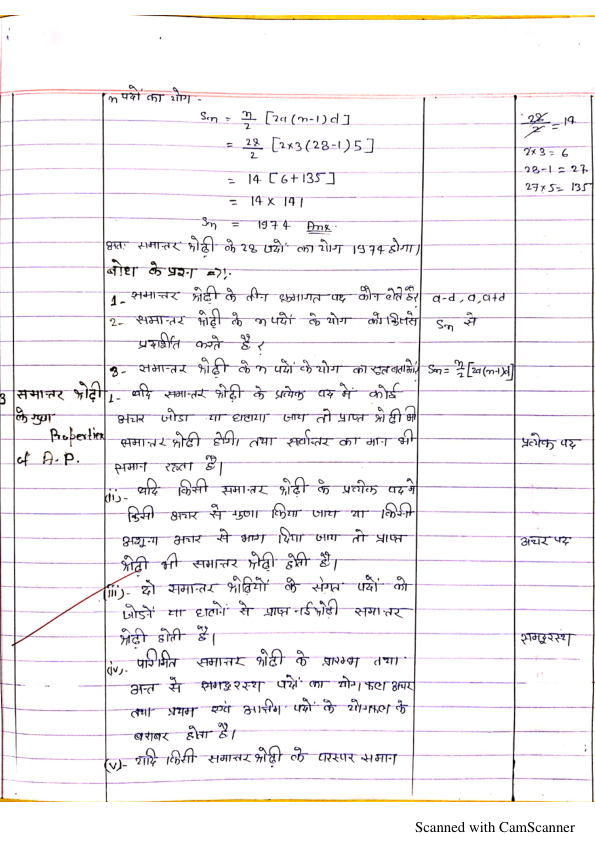 n पदों का योग -
Sn = n/2 [2a(n-1)d]
= 28/2 [2×3(28-1)5]
= 14 [6+135]
= 14 × 141
Sn = 1974 Ans.
28/2 = 14
2×3 = 6
28-1 = 27
27×5 = 135
अतः समान्तर श्रेढ़ी के 28 पदों का योग 1974 होगा।
बोध के प्रश्न =>:-
1- समान्तर श्रेढ़ी के तीन क्रमागत पद कौन होते है? a-d, a, a+d
2- समान्तर श्रेढ़ी के n पदों के योग को किससे Sn से
प्रदर्शित करते है?
3- समान्तर श्रेढ़ी के n पदों के योग का सूत्र बताओ। Sn = n/2[2a(n-1)d]
3 समान्तर श्रेढ़ी
के गुण
Properties
of A.P.
1- यदि समान्तर श्रेढ़ी के प्रत्येक पद में कोई
अचर जोडा या घटाया जाय तो प्राप्त श्रेढ़ी भी
समान्तर श्रेढ़ी होगी तथा सर्वान्तर का मान भी प्रत्येक पद
समान रहता है।
(ii)- यदि किसी समान्तर श्रेढ़ी के प्रत्येक पद मे
किसी अचर से गुणा किया जाय या किसी
अशून्य अचर से भाग दिया जाय तो प्राप्त अचर पद
श्रेढ़ी भी समान्तर श्रेढ़ी होती है।
(iii)- दो समान्तर श्रेढ़ियों के संगत पदों को
जोडने या घटाने से प्राप्त नई श्रेढ़ी समान्तर
श्रेढ़ी होती है। समदूरस्थ
(iv)- परिमित समान्तर श्रेढ़ी के प्रारम्भ तथा
अन्त से समदूरस्थ पदों का योगफल अचर
तथा प्रथम एवं अन्तिम पदों के योगफल के
बराबर होता है।
(v)- यदि किसी समान्तर श्रेढ़ी के परस्पर समान
Scanned with CamScanner